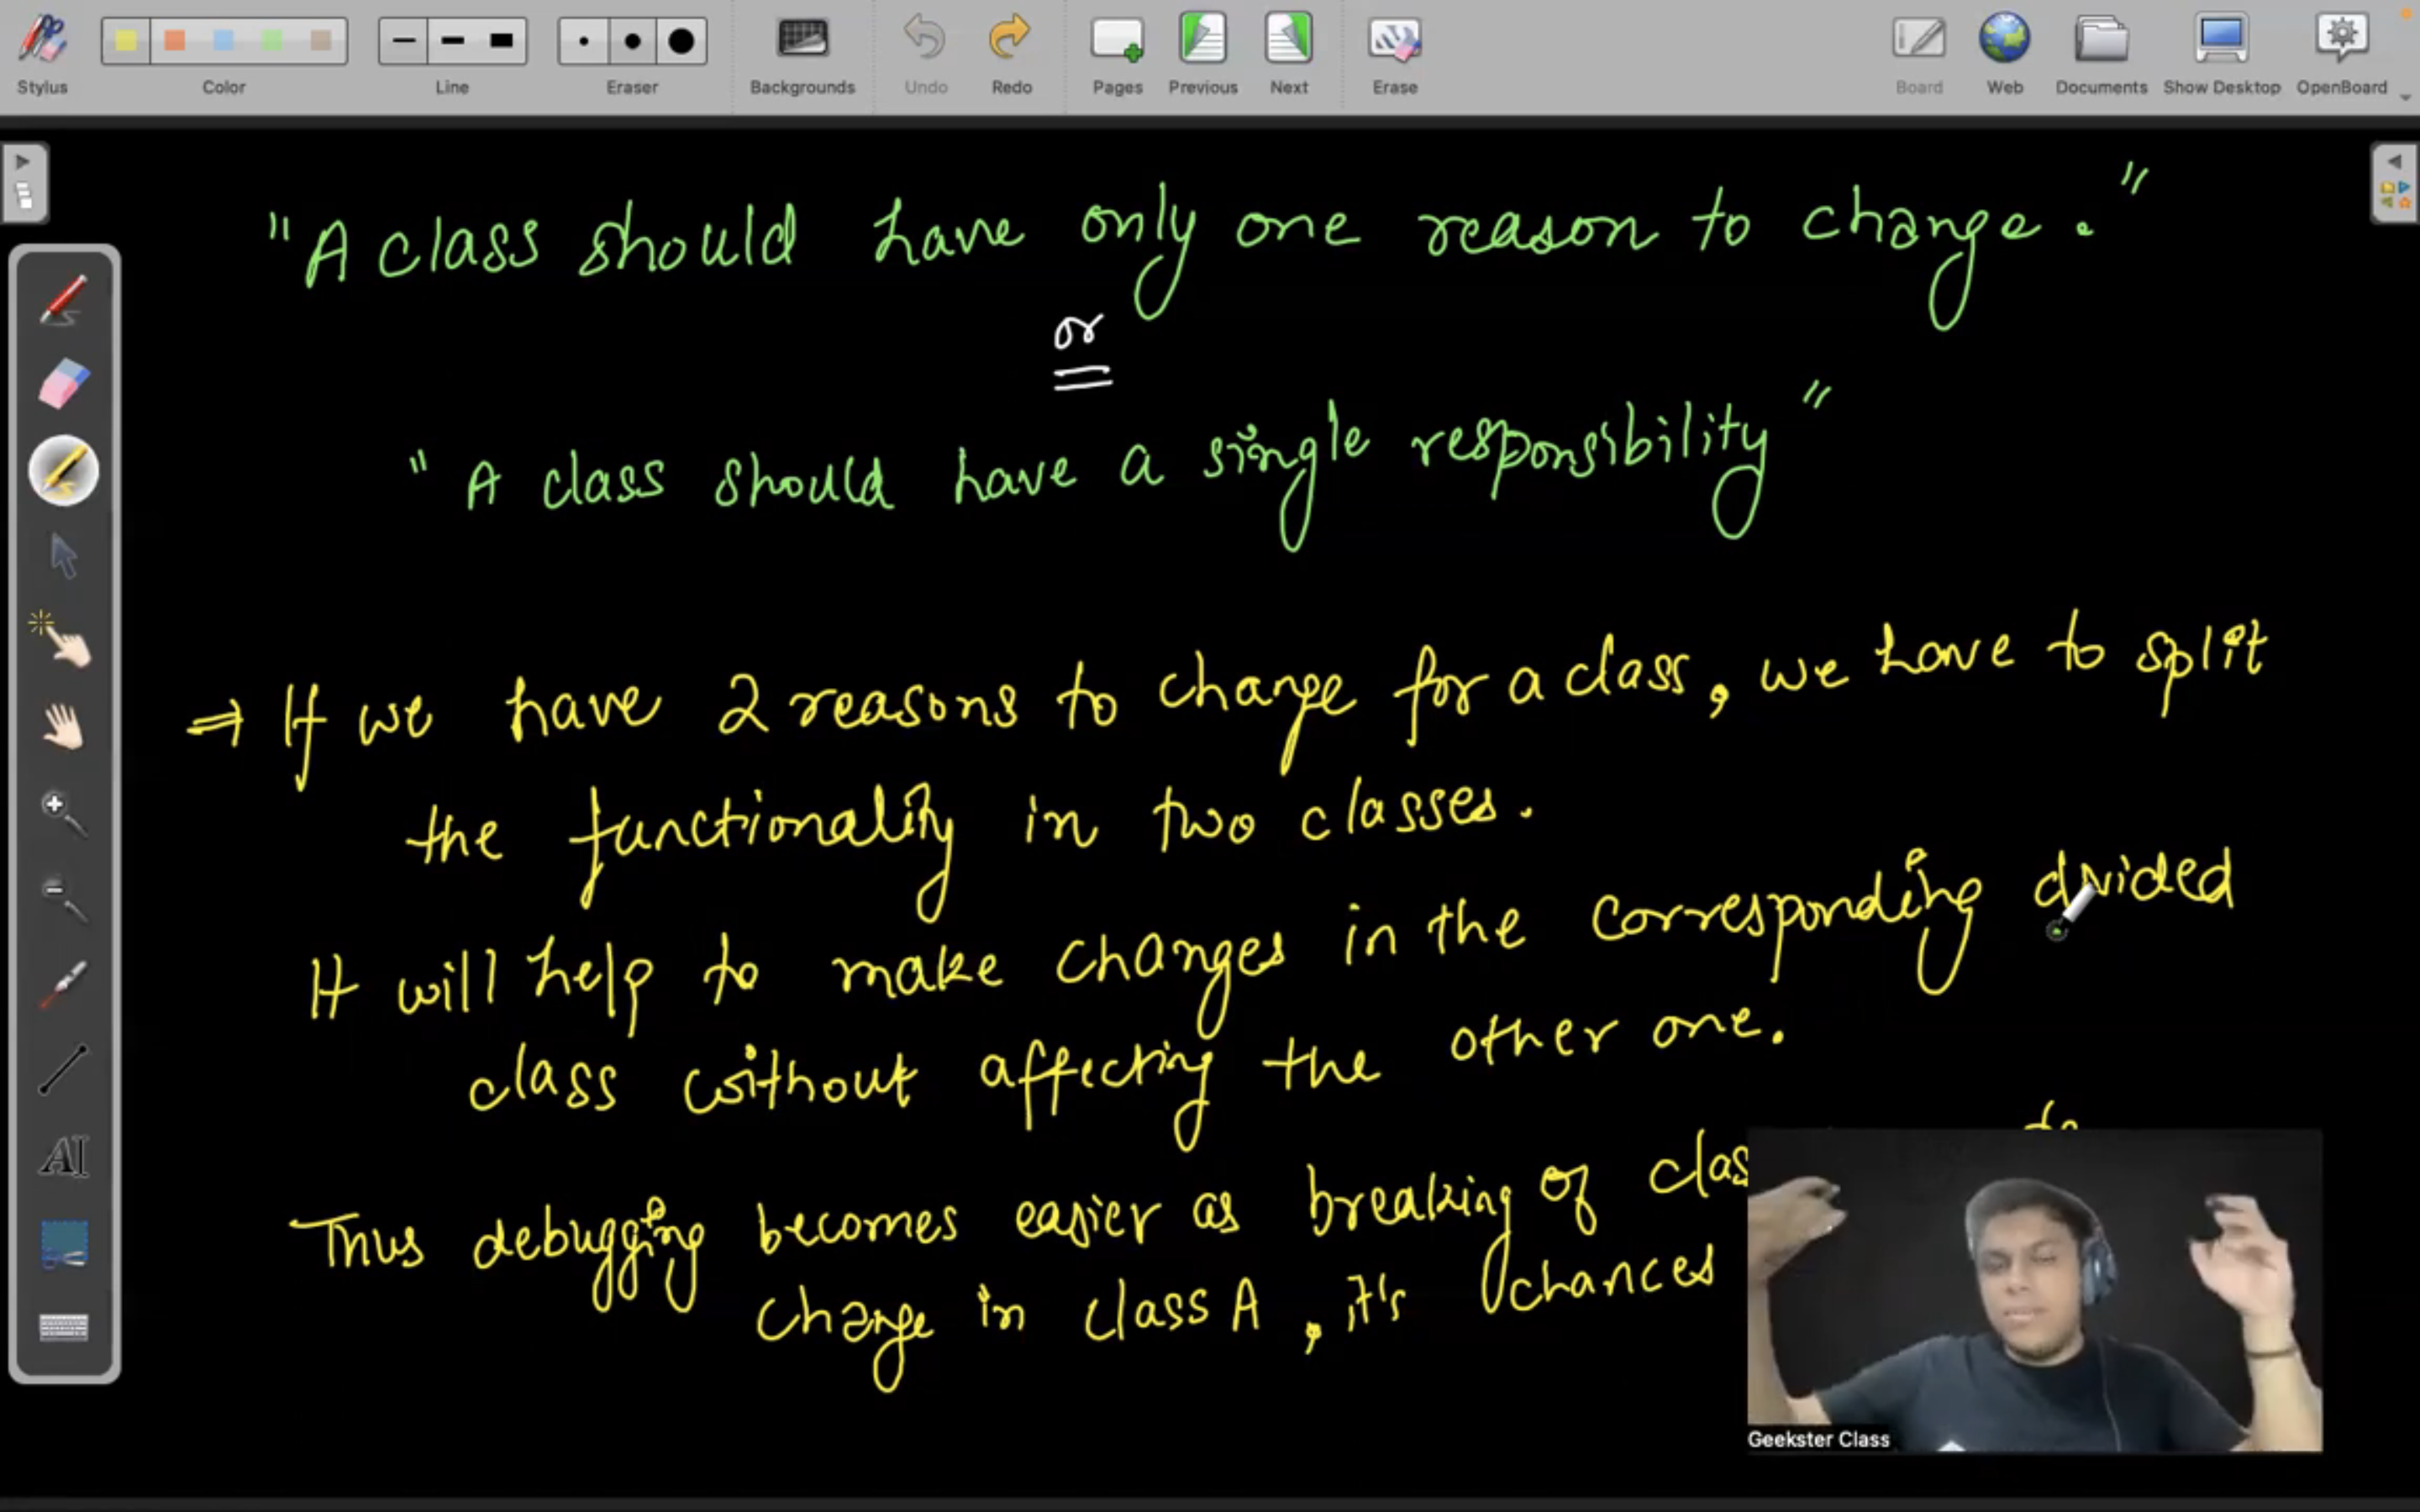 Stylus
Color
Line
Eraser
Backgrounds
Undo
Redo
Pages
Previous
Next
Erase
Board
Web
Documents
Show Desktop
OpenBoard
"A class should have only one reason to change."
or
"A class should have a single responsibility"
⇒ If we have 2 reasons to change for a class, we have to split
the functionality in two classes.
It will help to make changes in the corresponding divided
class without affecting the other one.
Thus debugging becomes easier as breaking of clas
change in class A, it's chances
AI
Geekster Class